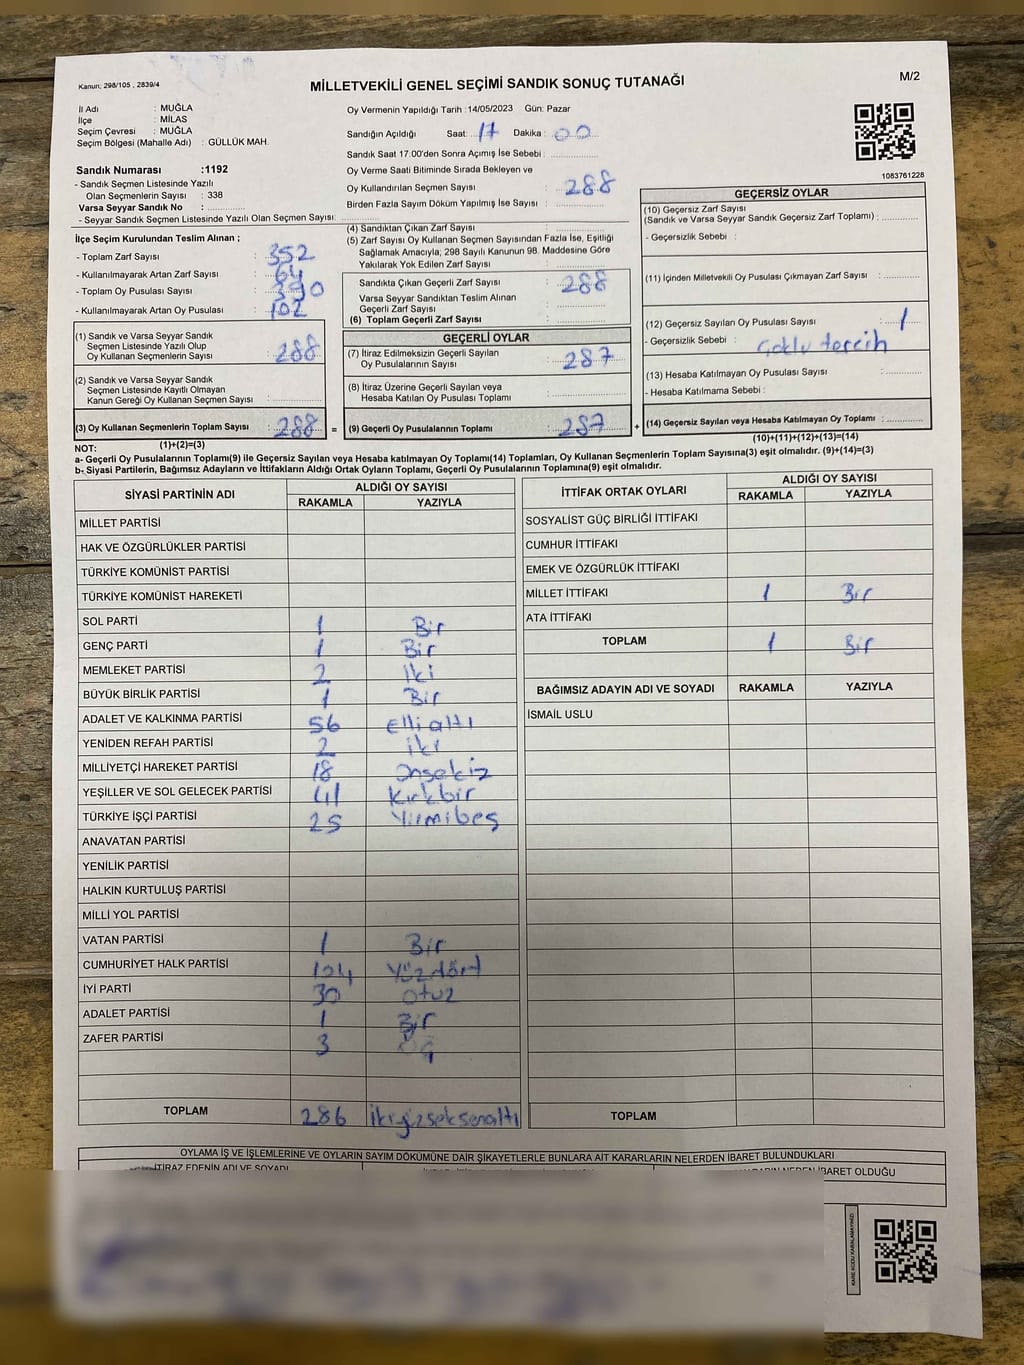 Kanun; 298/105 , 2839/4
MİLLETVEKİLİ GENEL SEÇİMİ SANDIK SONUÇ TUTANAĞI
M/2
İl Adı : MUĞLA
İlçe : MİLAS
Seçim Çevresi : MUĞLA
Seçim Bölgesi (Mahalle Adı) : GÜLLÜK MAH.
Oy Vermenin Yapıldığı Tarih :14/05/2023 Gün: Pazar
Sandığın Açıldığı Saat: 17 Dakika : 00
Sandık Saat 17:00'den Sonra Açımış İse Sebebi :
Oy Verme Saati Bitiminde Sırada Bekleyen ve
Oy Kullandırılan Seçmen Sayısı : 288
Birden Fazla Sayım Döküm Yapılmış İse Sayısı :
1083761228
Sandık Numarası :1192
- Sandık Seçmen Listesinde Yazılı
Olan Seçmenlerin Sayısı : 338
Varsa Seyyar Sandık No :
- Seyyar Sandık Seçmen Listesinde Yazılı Olan Seçmen Sayısı:
İlçe Seçim Kurulundan Teslim Alınan ;
- Toplam Zarf Sayısı : 352
- Kullanılmayarak Artan Zarf Sayısı : 64
- Toplam Oy Pusulası Sayısı : 390
- Kullanılmayarak Artan Oy Pusulası : 102
(1) Sandık ve Varsa Seyyar Sandık
Seçmen Listesinde Yazılı Olup
Oy Kullanan Seçmenlerin Sayısı : 288
(2) Sandık ve Varsa Seyyar Sandık
Seçmen Listesinde Kayıtlı Olmayan
Kanun Gereği Oy Kullanan Seçmen Sayısı :
(3) Oy Kullanan Seçmenlerin Toplam Sayısı : 288 =
(1)+(2)=(3)
(4) Sandıktan Çıkan Zarf Sayısı :
(5) Zarf Sayısı Oy Kullanan Seçmen Sayısından Fazla İse, Eşitliği
Sağlamak Amacıyla; 298 Sayılı Kanunun 98. Maddesine Göre
Yakılarak Yok Edilen Zarf Sayısı :
Sandıkta Çıkan Geçerli Zarf Sayısı : 288
Varsa Seyyar Sandıktan Teslim Alınan
Geçerli Zarf Sayısı :
(6) Toplam Geçerli Zarf Sayısı :
GEÇERLİ OYLAR
(7) İtiraz Edilmeksizin Geçerli Sayılan
Oy Pusulalarının Sayısı : 287
(8) İtiraz Üzerine Geçerli Sayılan veya
Hesaba Katılan Oy Pusulası Toplamı :
(9) Geçerli Oy Pusulalarının Toplamı : 287 +
GEÇERSİZ OYLAR
(10) Geçersiz Zarf Sayısı
(Sandık ve Varsa Seyyar Sandık Geçersiz Zarf Toplamı) :
- Geçersizlik Sebebi :
(11) İçinden Milletvekili Oy Pusulası Çıkmayan Zarf Sayısı :
(12) Geçersiz Sayılan Oy Pusulası Sayısı : 1
- Geçersizlik Sebebi : Çoklu tercih
(13) Hesaba Katılmayan Oy Pusulası Sayısı :
- Hesaba Katılmama Sebebi :
(14) Geçersiz Sayılan veya Hesaba Katılmayan Oy Toplamı :
(10)+(11)+(12)+(13)=(14)
NOT:
a- Geçerli Oy Pusulalarının Toplamı(9) ile Geçersiz Sayılan veya Hesaba katılmayan Oy Toplamı(14) Toplamları, Oy Kullanan Seçmenlerin Toplam Sayısına(3) eşit olmalıdır. (9)+(14)=(3)
b- Siyasi Partilerin, Bağımsız Adayların ve İttifakların Aldığı Ortak Oyların Toplamı, Geçerli Oy Pusulalarının Toplamına(9) eşit olmalıdır.
SİYASİ PARTİNİN ADI ALDIĞI OY SAYISI
RAKAMLA YAZIYLA
MİLLET PARTİSİ
HAK VE ÖZGÜRLÜKLER PARTİSİ
TÜRKİYE KOMÜNİST PARTİSİ
TÜRKİYE KOMÜNİST HAREKETİ
SOL PARTİ 1 Bir
GENÇ PARTİ 1 Bir
MEMLEKET PARTİSİ 2 İki
BÜYÜK BİRLİK PARTİSİ 1 Bir
ADALET VE KALKINMA PARTİSİ 56 Elli altı
YENİDEN REFAH PARTİSİ 2 İki
MİLLİYETÇİ HAREKET PARTİSİ 18 Onsekiz
YEŞİLLER VE SOL GELECEK PARTİSİ 41 Kırkbir
TÜRKİYE İŞÇİ PARTİSİ 25 Yirmibeş
ANAVATAN PARTİSİ
YENİLİK PARTİSİ
HALKIN KURTULUŞ PARTİSİ
MİLLİ YOL PARTİSİ
VATAN PARTİSİ 1 Bir
CUMHURİYET HALK PARTİSİ 104 Yüzdört
İYİ PARTİ 30 Otuz
ADALET PARTİSİ 1 Bir
ZAFER PARTİSİ 3
TOPLAM 286 İkiyüzseksenaltı
İTTİFAK ORTAK OYLARI ALDIĞI OY SAYISI
RAKAMLA YAZIYLA
SOSYALİST GÜÇ BİRLİĞİ İTTİFAKI
CUMHUR İTTİFAKI
EMEK VE ÖZGÜRLÜK İTTİFAKI
MİLLET İTTİFAKI 1 Bir
ATA İTTİFAKI
TOPLAM 1 Bir
BAĞIMSIZ ADAYIN ADI VE SOYADI RAKAMLA YAZIYLA
İSMAİL USLU
TOPLAM
OYLAMA İŞ VE İŞLEMLERİNE VE OYLARIN SAYIM DÖKÜMÜNE DAİR ŞİKAYETLERLE BUNLARA AİT KARARLARIN NELERDEN İBARET BULUNDUKLARI
İTİRAZ EDENİN ADI VE SOYADI
NEDEN İBARET OLDUĞU
KARE KODU KARALAMAYINIZ!